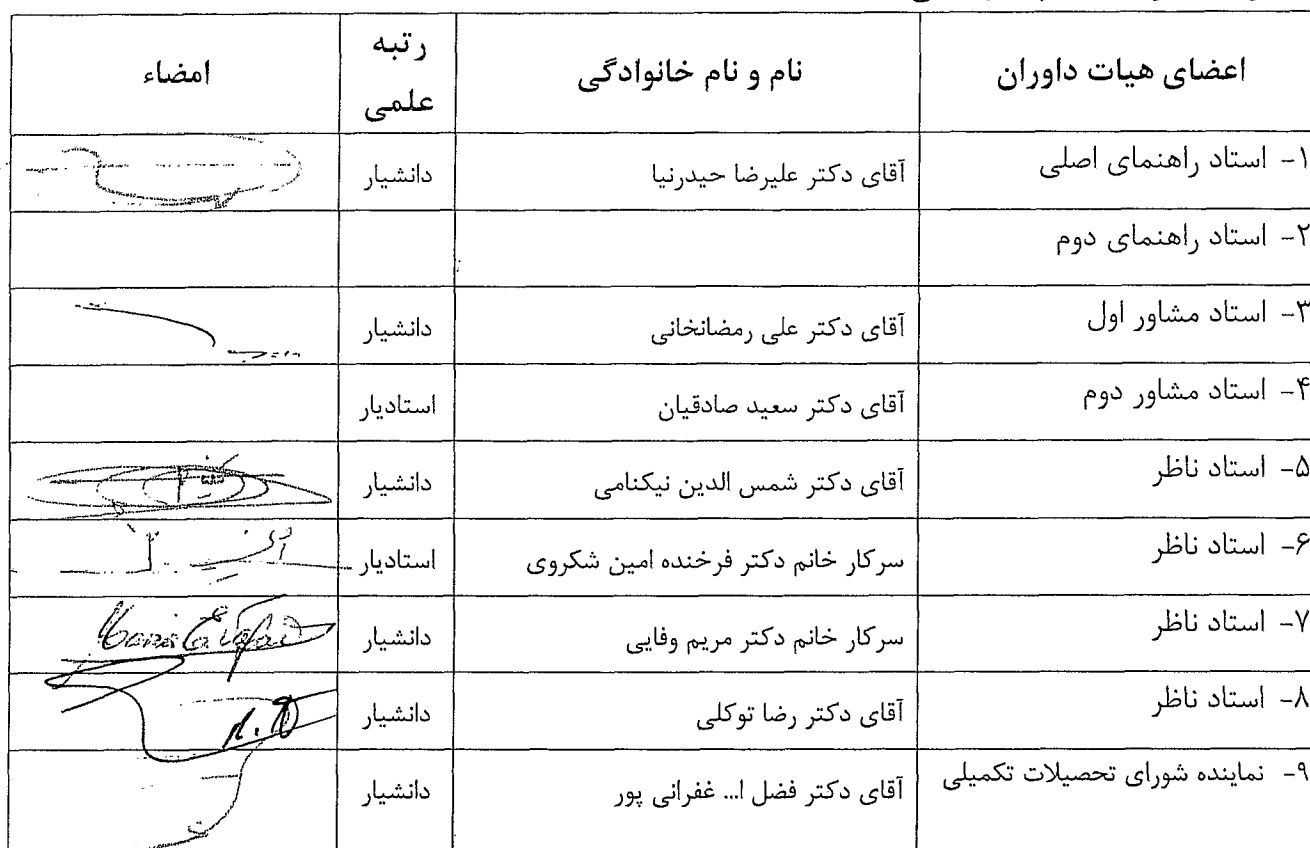 اعضای هیات داوران نام و نام خانوادگی رتبه علمی امضاء
۱- استاد راهنمای اصلی آقای دکتر علیرضا حیدرنیا دانشیار
۲- استاد راهنمای دوم
۳- استاد مشاور اول آقای دکتر علی رمضانخانی دانشیار
۴- استاد مشاور دوم آقای دکتر سعید صادقیان استادیار
۵- استاد ناظر آقای دکتر شمس الدین نیکنامی دانشیار
۶- استاد ناظر سرکار خانم دکتر فرخنده امین شکروی استادیار
۷- استاد ناظر سرکار خانم دکتر مریم وفایی دانشیار
۸- استاد ناظر آقای دکتر رضا توکلی دانشیار
۹- نماینده شورای تحصیلات تکمیلی آقای دکتر فضل ا... غفرانی پور دانشیار